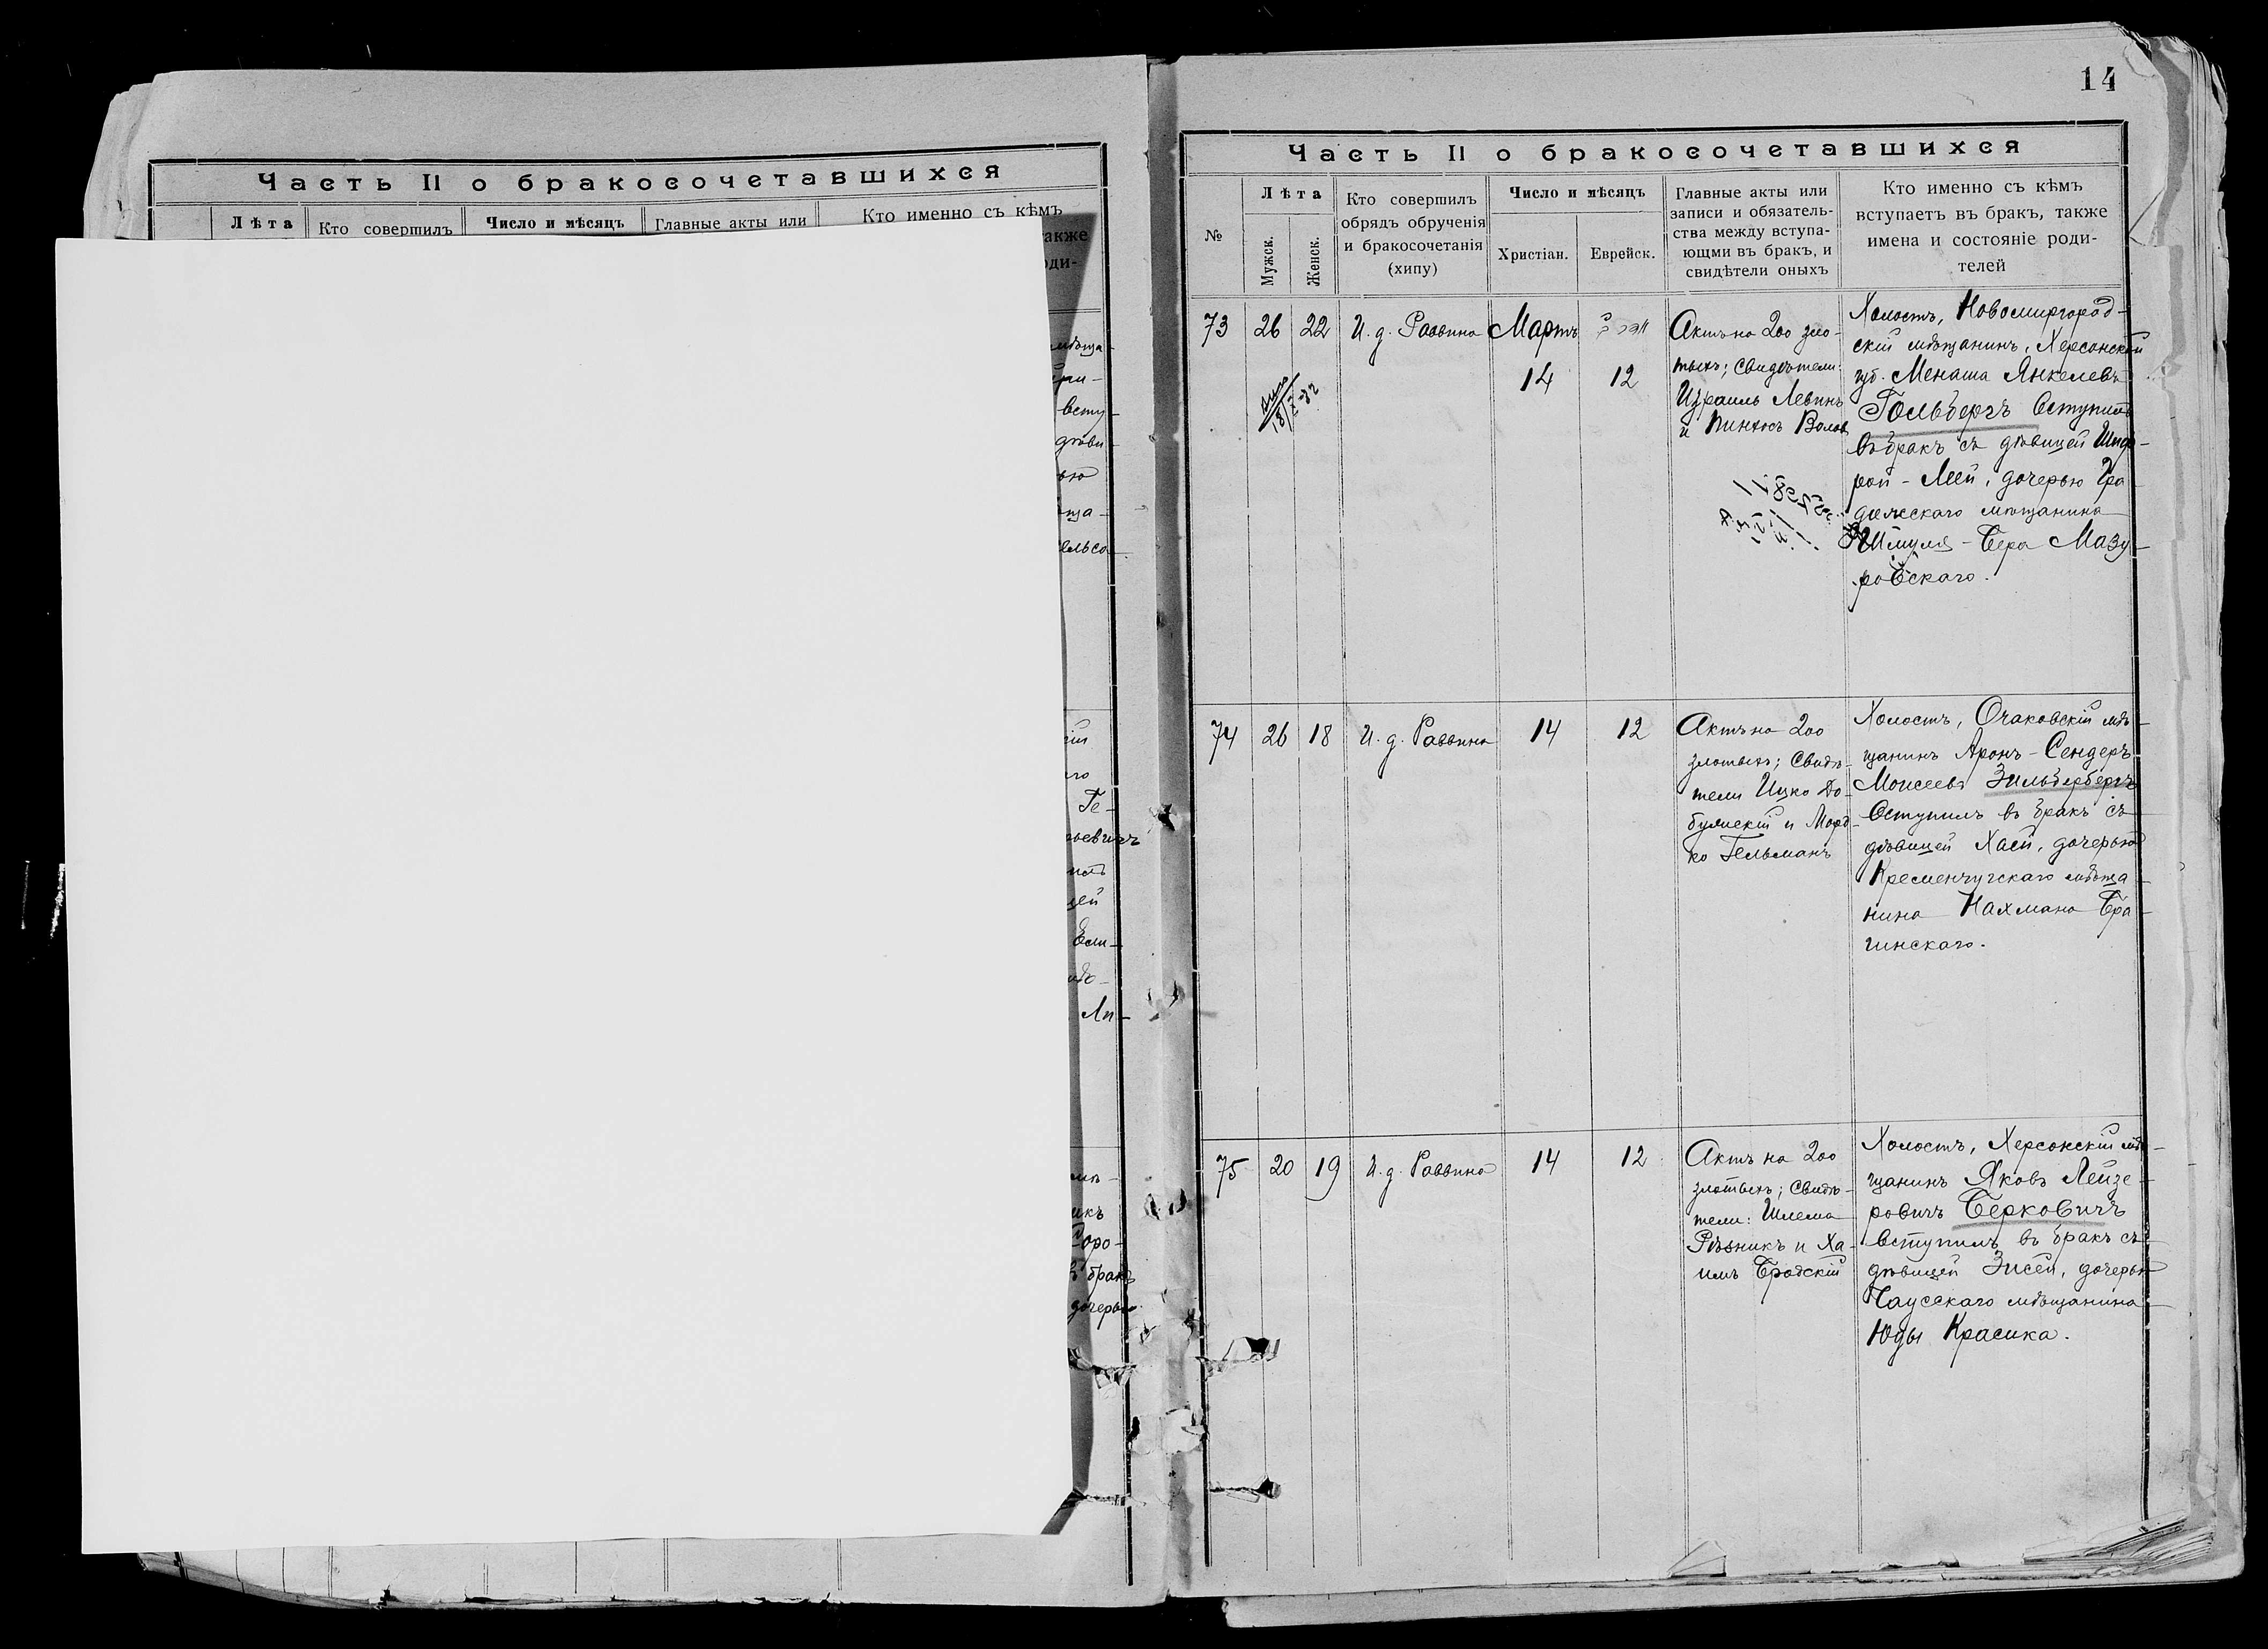 Часть II о бракосочетавшихся
Лѣта
Кто совершилъ
Число и мѣсяцъ
Главные акты или
Кто именно съ кѣмъ
14
Часть II о бракосочетавшихся
№
Лѣта
Мужск.
Женск.
Кто совершилъ
обрядъ обрученія
и бракосочетанія
(хипу)
Число и мѣсяцъ
Христіан.
Еврейск.
Главные акты или
записи и обязатель-
ства между вступа-
ющми въ бракъ, и
свидѣтели оныхъ
Кто именно съ кѣмъ
вступаетъ въ бракъ, также
имена и состояніе роди-
телей
73
26
22
И. д. Раввина
Мартъ
14
12
Актъ на 200 зло-
тыхъ; Свидѣтели:
Израиль Левинъ
и Пинхосъ Волов
Холостъ, Новомиргород-
скій мѣщанинъ, Херсонской
губ. Менаша Янкелевъ
Гольбергъ вступилъ
въ бракъ съ дѣвицей Шиф-
рой-Леей, дочерью Гра-
дижскаго мѣщанина
Шмуля-Бера Мазу-
ровскаго.
74
26
18
И. д. Раввина
14
12
Актъ на 200
злотыхъ; Свидѣ-
тели Ицко До-
бужскій иМорд-
ко Гельманъ
Холостъ, Очаковскій мѣ-
щанинъ Аронъ-Сендеръ
Моисеевъ Зильберберг
вступилъ въ бракъ съ
дѣвицей Хаей, дочерью
Кременчугскаго мѣща-
нина Нахмана Бра-
гинскаго.
75
20
19
И. д. Раввина
14
12
Актъ на 200
злотыхъ; Свидѣ-
тели: Шлема
Рѣзникъ и Ха-
имъ Бродскій
Холостъ, Херсонскій мѣ-
щанинъ Яковъ Лейзе-
ровичъ Берковичъ
вступилъ въ бракъ съ
дѣвицей Зисей, дочерью
Чаусскаго мѣщанина
Юды Красика.